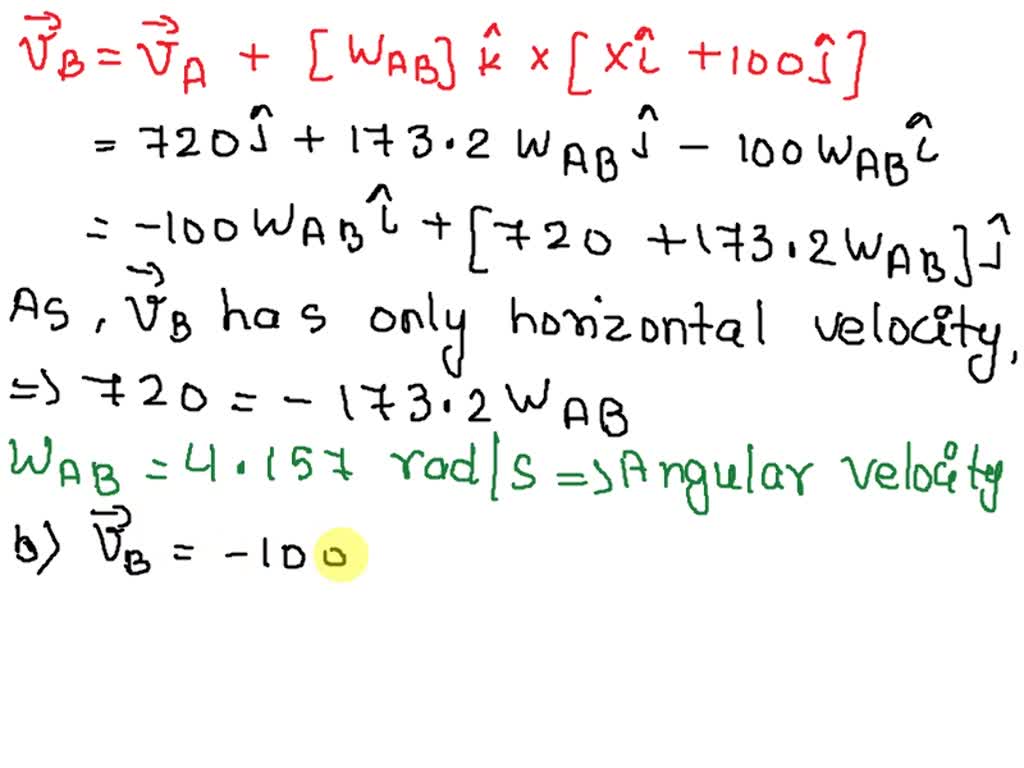 V⃗_B = V⃗_A + [W_AB] k̂ × [xî + 100ĵ]
= 720ĵ + 173.2 W_AB ĵ - 100 W_AB î
= -100 W_AB î + [720 + 173.2 W_AB] ĵ
As, V⃗_B has only horizontal velocity,
=> 720 = - 173.2 W_AB
W_AB = 4.157 rad/s => Angular velocity
b) V⃗_B = -100